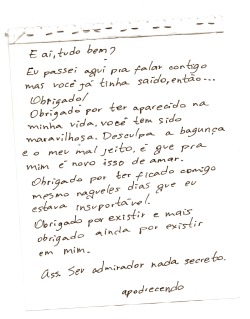 E aí, tudo bem?
Eu passei aqui pra falar contigo
mas você já tinha saído, então...
Obrigado!
Obrigado por ter aparecido na
minha vida, você tem sido
maravilhosa. Desculpa a bagunça
e o meu mal jeito, é que pra
mim é novo isso de amar.
Obrigado por ter ficado comigo
mesmo naqueles dias que eu
estava insuportável.
Obrigado por existir e mais
obrigado ainda por existir
em mim.
Ass. Seu admirador nada secreto.
apodrecendo